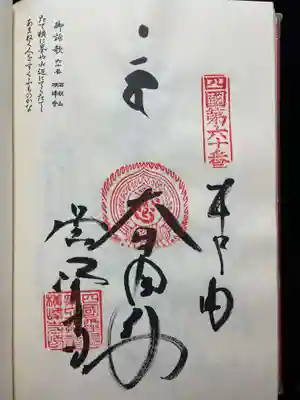 四國第六十番
奉納
大日如来
横峰寺
御詠歌 六十番 石鈇山 横峰寺
たて横に峰や山辺にてらたてて
あまねく人をすくふものかな